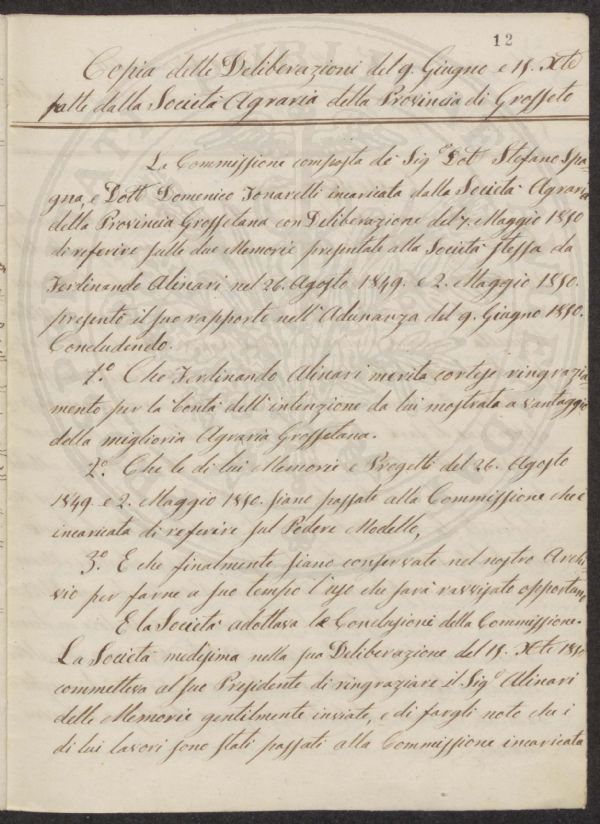 12
Copia delle Deliberazioni del 9. Giugno e 15. Xbre
fatte dalla Società Agraria della Provincia di Grosseto
La Commissione composta de' Sigri Dott Stefano Spa=
gna, e Dott Domenico Tonarelli incaricata dalla Società Agraria
della Provincia Grossetana con Deliberazione del 7. Maggio 1850
di referire sulle due Memorie presentate alla Società stessa da
Ferdinando Alinari nel 26. Agosto 1849. e 2. Maggio 1850.
presentò il suo rapporto nell'Adunanza del 9. Giugno 1850.
Concludendo.
1.º Che Ferdinando Alinari merita cortese ringrazia
mento per la bontà dell'intenzione da lui mostrata a vantaggio
della miglioria Agraria Grossetana.
2.º Che le di lui Memorie e Progetti del 26. Agosto
1849. e 2. Maggio 1850. siano passate alla Commissione che è
incaricata di referire sul Podere Modello,
3.º E che finalmente siano conservate nel nostro Archi
vio per farne a suo tempo l'uso che sarà ravvisato opportuno
E la Società adottava le Conclusioni della Commissione.
La Società medesima nella sua Deliberazione del 15. Xbre 1850
commetteva al suo Presidente di ringraziare il Sigr Alinari
delle Memorie gentilmente inviate, e di fargli noto che i
di lui lavori sono stati passati alla Commissione incaricata